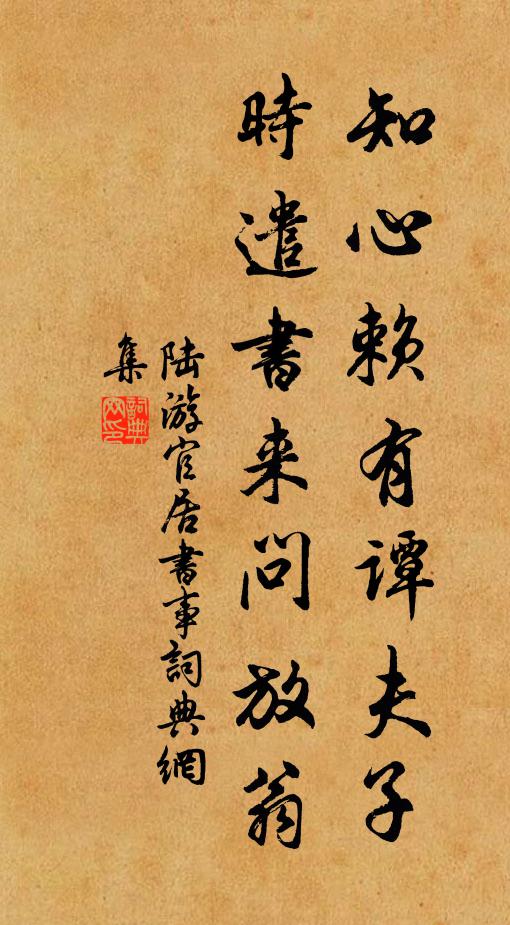 知心賴有譚夫子
時遣書来問放翁
陆游官居書事詞典網
集
詞典
网印